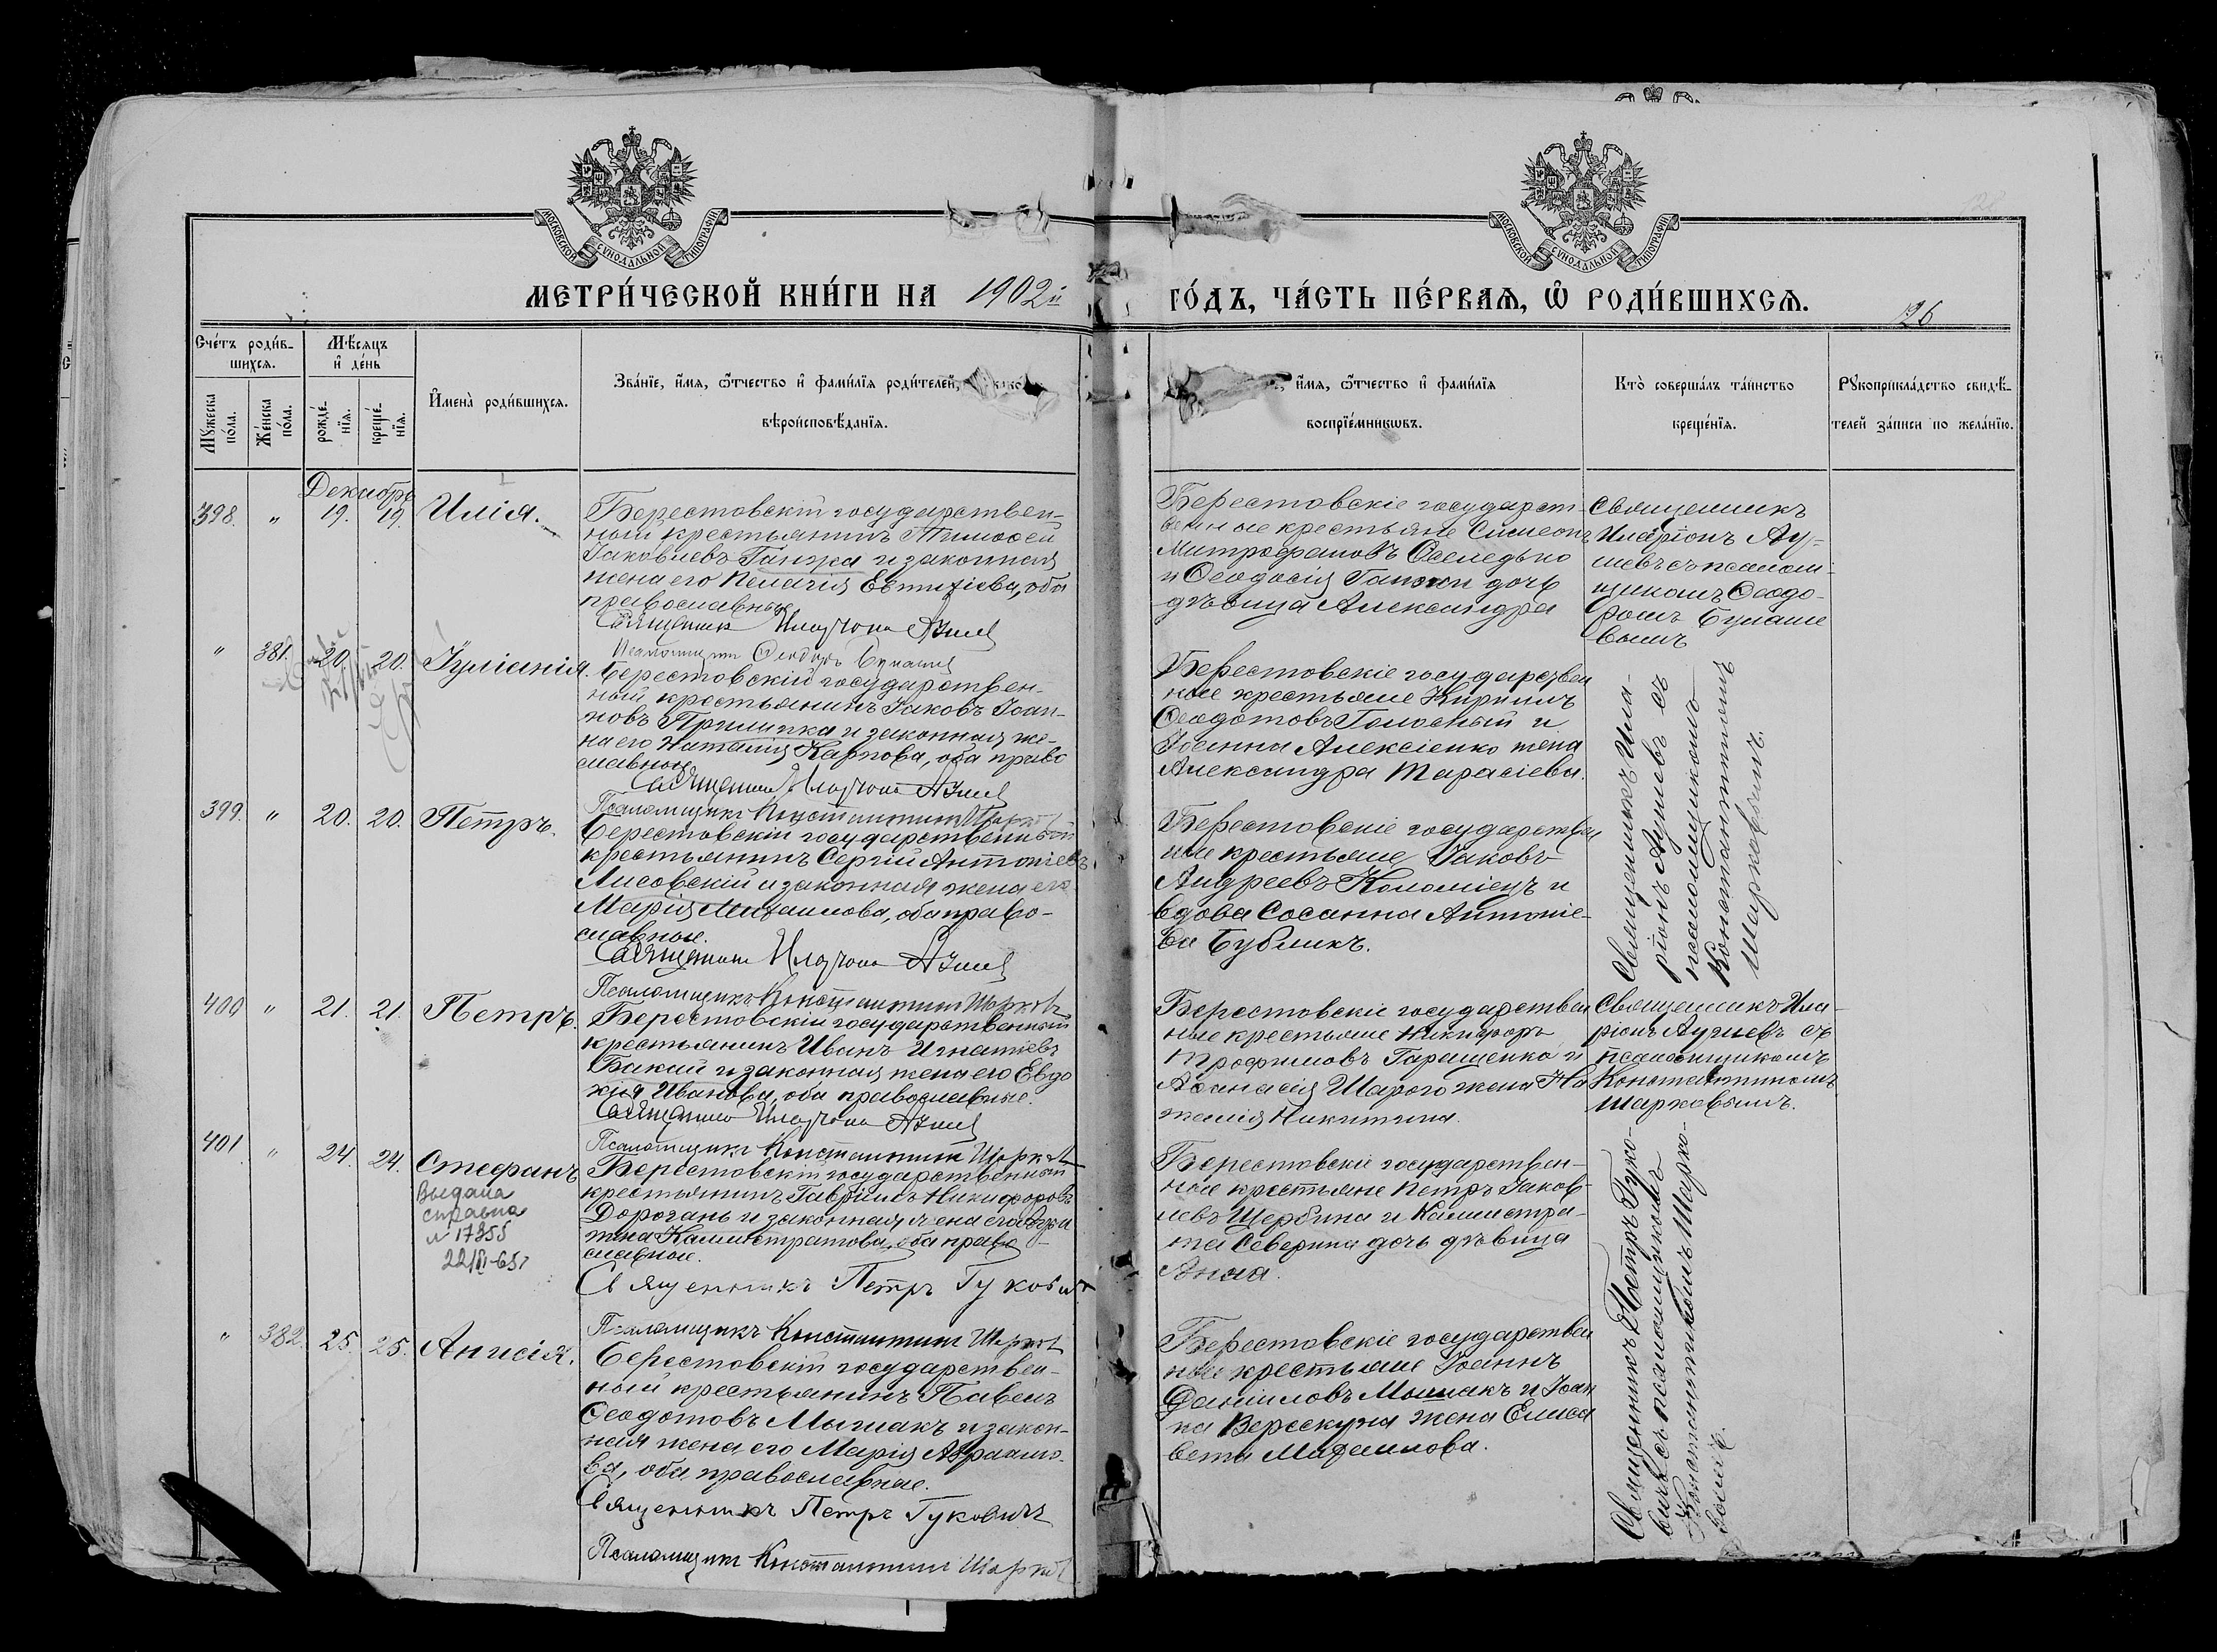 МОСКОВСКОЙ СѴНОДАЛЬНОЙ ТИПОГРАФІИ
МОСКОВСКОЙ СѴНОДАЛЬНОЙ ТИПОГРАФІИ
МЕТРИ́ЧЕСКОЙ КНИ́ГИ НА 1902й
ГО́ДЪ, ЧА́СТЬ ПЕ́РВАѦ, Ѡ РОДИ́ВШИХСѦ.
126
Сче́тъ роди́в-
шихсѧ.
Мꙋжеска
по́ла.
Же́нска
по́ла.
Мѣ́сѧцъ
и҆ де́нь
рожде́-
нїѧ.
креще́-
нїѧ.
И҆мена̀ роди́вшихсѧ.
Зва́нїе, и҆́мѧ, ѻ҆́тчество и҆ фами́лїѧ роди́телей,
вѣроисповѣ́данїѧ.
и҆́мѧ, ѻ҆́тчество и҆ фами́лїѧ
воспрїе́мникѡвъ.
Кто̀ соверша́лъ та́инство
креще́нїѧ.
Рꙋкоприкла́дство свидѣ́-
телей за́писи по жела́нїю.
Декабрь
398. " 19. 19. Илія.
Берестовскій государствен-
ный крестьянинъ Тимоѳей
Іаковлевъ Ганжа и законная
жена его Пелагія Евтихіева, оба
православные
Священникъ Иларіонъ
Псаломщикъ Ѳеодоръ
Берестовскіе государст-
венные крестьяне Симеонъ
Митрофановъ Оселедько
и Ѳеодосія Ганжи дочь
дѣвица Александра
Священникъ
Иларіонъ Ау-
лиевъ съ псалом-
щикомъ Ѳеодо-
ромъ
вымъ
" 381. 20. 20. Іуліанія.
Берестовскій государствен-
ный крестьянинъ Іаковъ Іоан-
новъ Прилипка и законная же-
на его Наталія Карпова, оба право
славные
Священникъ Иларіонъ
Псаломщикъ Константинъ
Берестовскіе государствен
ные крестьяне Кириллъ
Ѳеодотовъ Голосный и
Іоанна Алексіенко жена
Александра Тарасіева.
Священникъ Ила-
ріонъ Аулиевъ съ
псаломщикомъ
Константиномъ
Шарковымъ.
399. " 20. 20. Петръ.
Берестовскій государственный
крестьянинъ Сергій Антоніевъ
Лисовскій и законная жена его
Марія Михаилова, оба право-
славные.
Священникъ Иларіонъ
Псаломщикъ Константинъ
Берестовскіе государствен
ные крестьяне Іаковъ
Андреевъ Коломіецъ и
вдова Сосанна Антоніе-
ва Бубликъ.
400 " 21. 21. Петръ.
Берестовскій государственный
крестьянинъ Иванъ Игнатіевъ
Бакай и законная жена его Евдо
кія Иванова, оба православные.
Священникъ Иларіонъ
Псаломщикъ Константинъ
Берестовскіе государствен
ные крестьяне Никифоръ
Трофимовъ Гаращенко и
Аѳанасія Шарого жена На
талія Никитина.
Священникъ Ила-
ріонъ Аулиевъ съ
псаломщикомъ
Константиномъ
Шарковымъ.
401. " 24. 24. Стефанъ
Выдана
справка
№ 17355
22/III-65г
Берестовскій государственный
крестьянинъ Гавріилъ Никифоровъ
Дорогань и законная жена его
Каллистратова, оба право-
славные.
Священникъ Петръ Гуковичъ
Псаломщикъ Константинъ
Берестовскіе государствен-
ные крестьяне Петръ Іаков-
левъ Щербина и Каллистра-
та Северина дочь дѣвица
Анна.
Священникъ Петръ Гуко-
вичъ съ псаломщикомъ
Константиномъ Шарко-
вымъ.
" 382. 25. 25. Анисія.
Берестовскій государствен-
ный крестьянинъ Павелъ
Ѳеодотовъ Мышакъ и закон-
ная жена его Марія Авраамо-
ва, оба православные.
Священникъ Петръ Гуковичъ
Псаломщикъ Константинъ
Берестовскіе государствен
ные крестьяне Іоаннъ
Даниловъ Мышакъ и Іоан
на Верескуна жена Елиса
вета Михаилова.